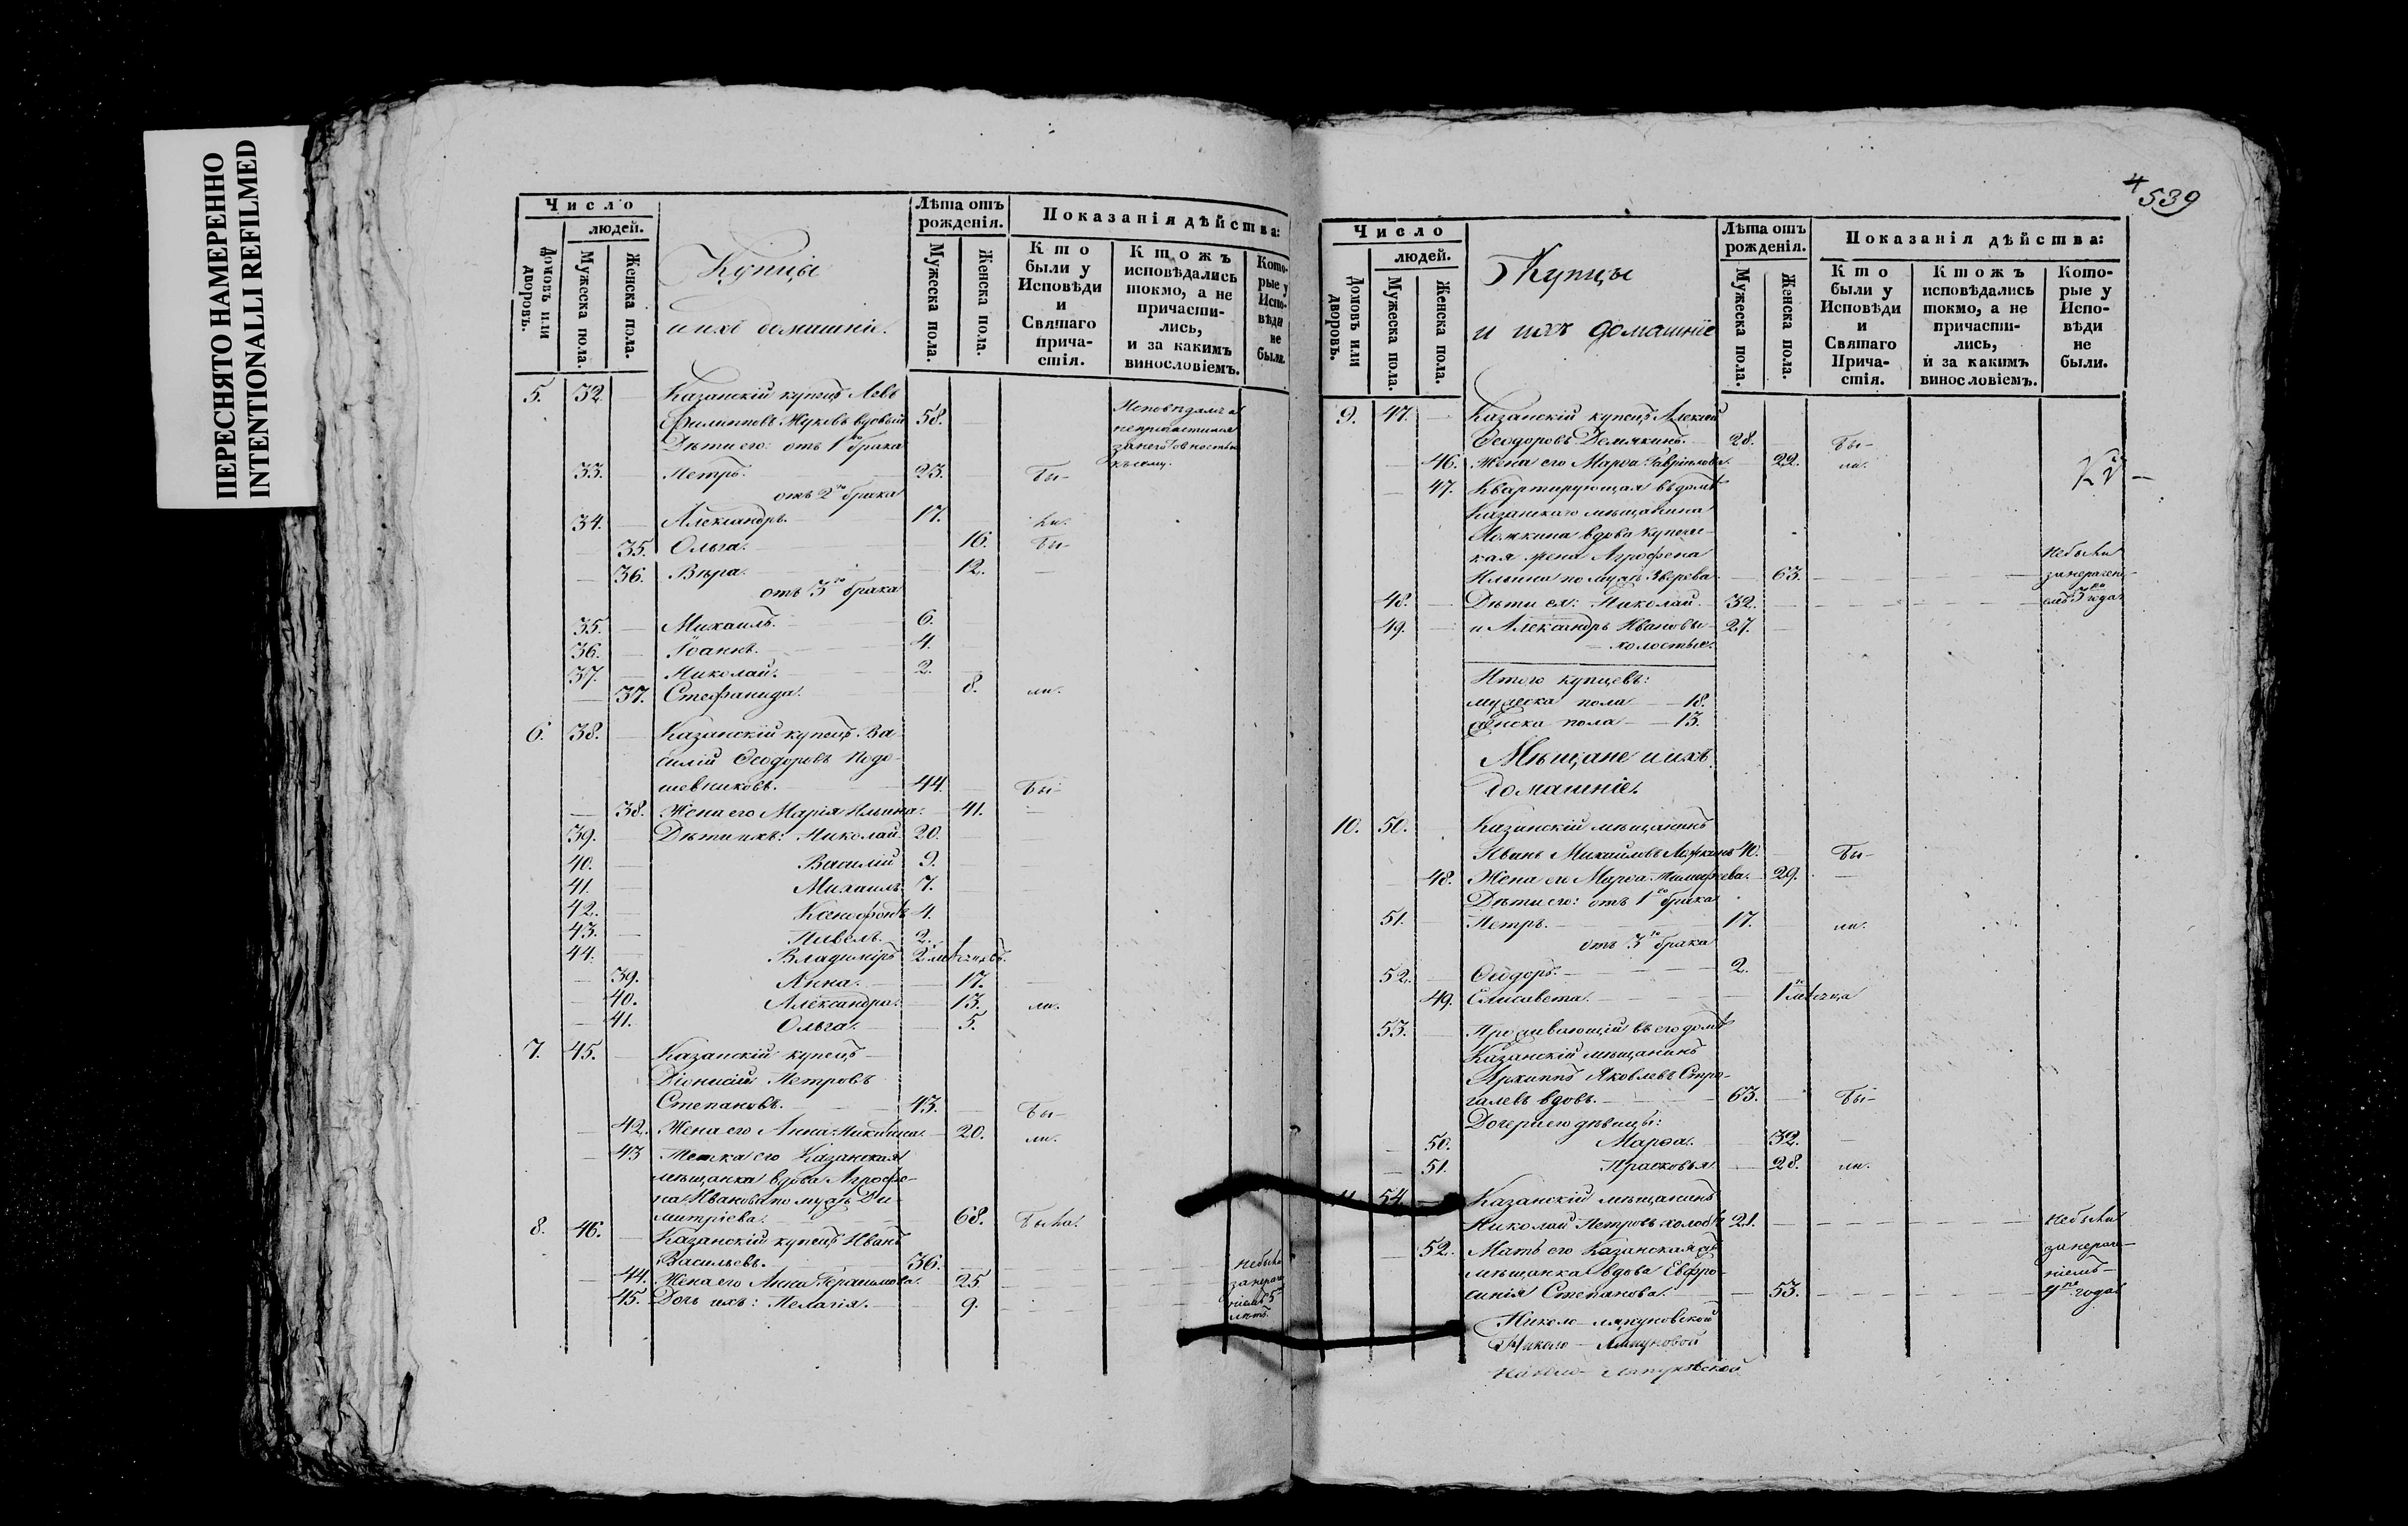 ПЕРЕСНЯТО НАМЕРЕННО
INTENTIONALLI REFILMED
Число
людей.
Домовъ или дворовъ.
Мужеска пола.
Женска пола.
Купцы
и ихъ домашніе.
Лѣта отъ рожденія.
Мужеска пола.
Женска пола.
Показанія дѣйства:
Кто были у Исповѣди и Святаго прича-стія.
Ктожъ исповѣдались токмо, а не причасти-лись, и за какимъ винословіемъ.
Кото-рые у Испо-вѣди не были.
5. 32. Казанскій купецъ Левъ
Филипповъ Жуковъ вдовый 58.
Дѣти его: отъ 1го брака
33. Петръ. 23. Бы-
отъ 2го брака
34. Александръ. 17. ли.
35. Ольга. 16. Бы-
36. Вѣра. 12.
отъ 3го брака
35. Михаилъ. 6.
36. Іоаннъ. 4.
37. Николай. 2.
37. Стефанида. 8. ли.
6. 38. Казанскій купецъ Ва-
силій Ѳеодоровъ Подо-
шевниковъ. 44. Бы-
38. Жена его Марія Ильина. 41.
39. Дѣти ихъ: Николай. 20.
40. Василій 9.
41. Михаилъ. 7.
42. Ксенофонтъ 4.
43. Павелъ. 2.
44. Владиміръ 2 мѣсяцовъ.
39. Анна. 17.
40. Александра. 13. ли.
41. Ольга. 5.
7. 45. Казанскій купецъ
Діонисій Петровъ
Степановъ. 43. Бы-
42. Жена его Анна Никитина. 20. ли.
43 Тетка его Казанская
мѣщанка вдова Агрофе-
на Иванова по мужѣ Ди-
митріева. 68. Была.
8. 46. Казанскій купецъ Иванъ
Васильевъ. 36.
44. Жена его Анна Герасимова. 25
45. Дочь ихъ: Пелагія. 9.
4
539
Число
людей.
Домовъ или дворовъ.
Мужеска пола.
Женска пола.
Купцы
и ихъ домашніе
Лѣта отъ рожденія.
Мужеска пола.
Женска пола.
Показанія дѣйства:
Кто были у Исповѣди и Святаго Прича-стія.
Ктожъ исповѣдались токмо, а не причасти-лись, и за какимъ винословіемъ.
Кото-рые у Испо-вѣди не были.
9. 47. Казанскій купецъ Алексій
Ѳеодоровъ Демякинъ. 28. Бы-
46. Жена его Марѳа Гаврілова. 22. ли.
47. Квартирующая въ домѣ
Казанскаго мѣщанина
вдова купече-
ская жена Агрофена
Ильина по мужѣ Зверева 63.
48. Дѣти ея: Николай 32.
49. и Александръ Ивановы 27.
холостые.
Итого купцевъ:
мужеска пола 18.
женска пола 13.
Мѣщане и ихъ
домашніе.
10. 50. Казанскій мѣщанинъ
Иванъ Михайловъ 40. Бы-
48. Жена его Марѳа Тимофеева. 29.
Дѣти его: отъ 1го брака
51. Петръ. 17. ли.
отъ 3го брака
52. Ѳеодоръ. 2.
49. Елисавета. 1 мѣсяца
53. Проживающій въ его домѣ
Казанскій мѣщанинъ
Архиппъ Яковлевъ Стро-
галевъ вдовъ. 63. Бы-
Дочери его дѣвицы:
50. Марѳа. 32.
51. Прасковья. 28. ли.
11. 54. Казанскій мѣщанинъ
Николай Петровъ холостъ 21.
52. Мать его Казанская
мѣщанка вдова Евфро-
синія Степанова. 53.